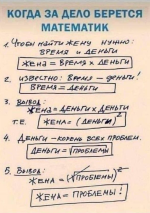 КОГДА ЗА ДЕЛО БЕРЕТСЯ
МАТЕМАТИК
1. Чтобы найти жену нужно:
время и деньги
Жена = Время × Деньги
2. Известно: Время – деньги!
Время = Деньги
3. Вывод:
Жена = Деньги × Деньги
т.е. Жена = (Деньги)²
4. Деньги – корень всех проблем.
Деньги = √Проблемы
5. Вывод:
Жена = (√Проблемы)²
Жена = Проблемы!